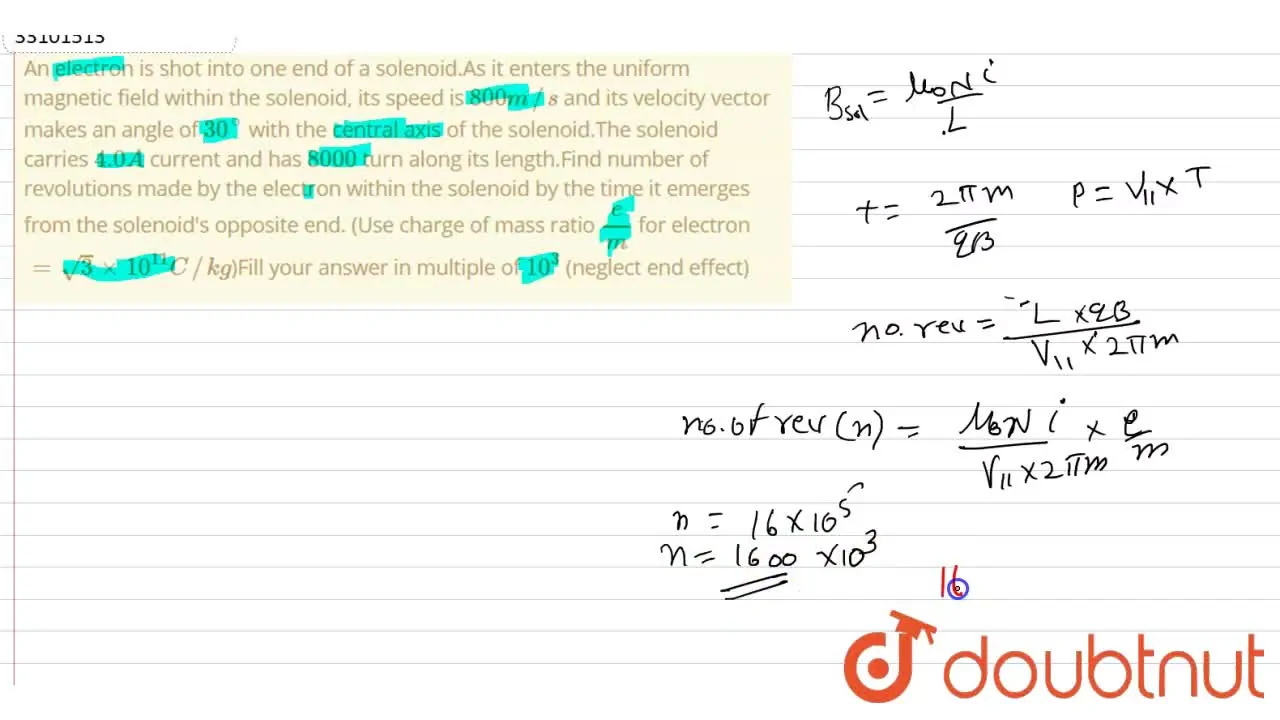 33101513
An electron is shot into one end of a solenoid.As it enters the uniform
magnetic field within the solenoid, its speed is 800m/s and its velocity vector
makes an angle of 30° with the central axis of the solenoid.The solenoid
carries 4.0A current and has 8000 turn along its length.Find number of
revolutions made by the electron within the solenoid by the time it emerges
from the solenoid's opposite end. (Use charge of mass ratio e/m for electron
= √3 × 10¹¹C/kg)Fill your answer in multiple of 10³ (neglect end effect)
B_sol = μ₀Ni/L
t = 2πm/qB P = V₁₁ × T
no. rev = L × qB / V₁₁ × 2πm
no. of rev (n) = μ₀Ni / V₁₁ × 2πm × e/m
n = 16 × 10⁵
n = 1600 × 10³
16
doubtnut